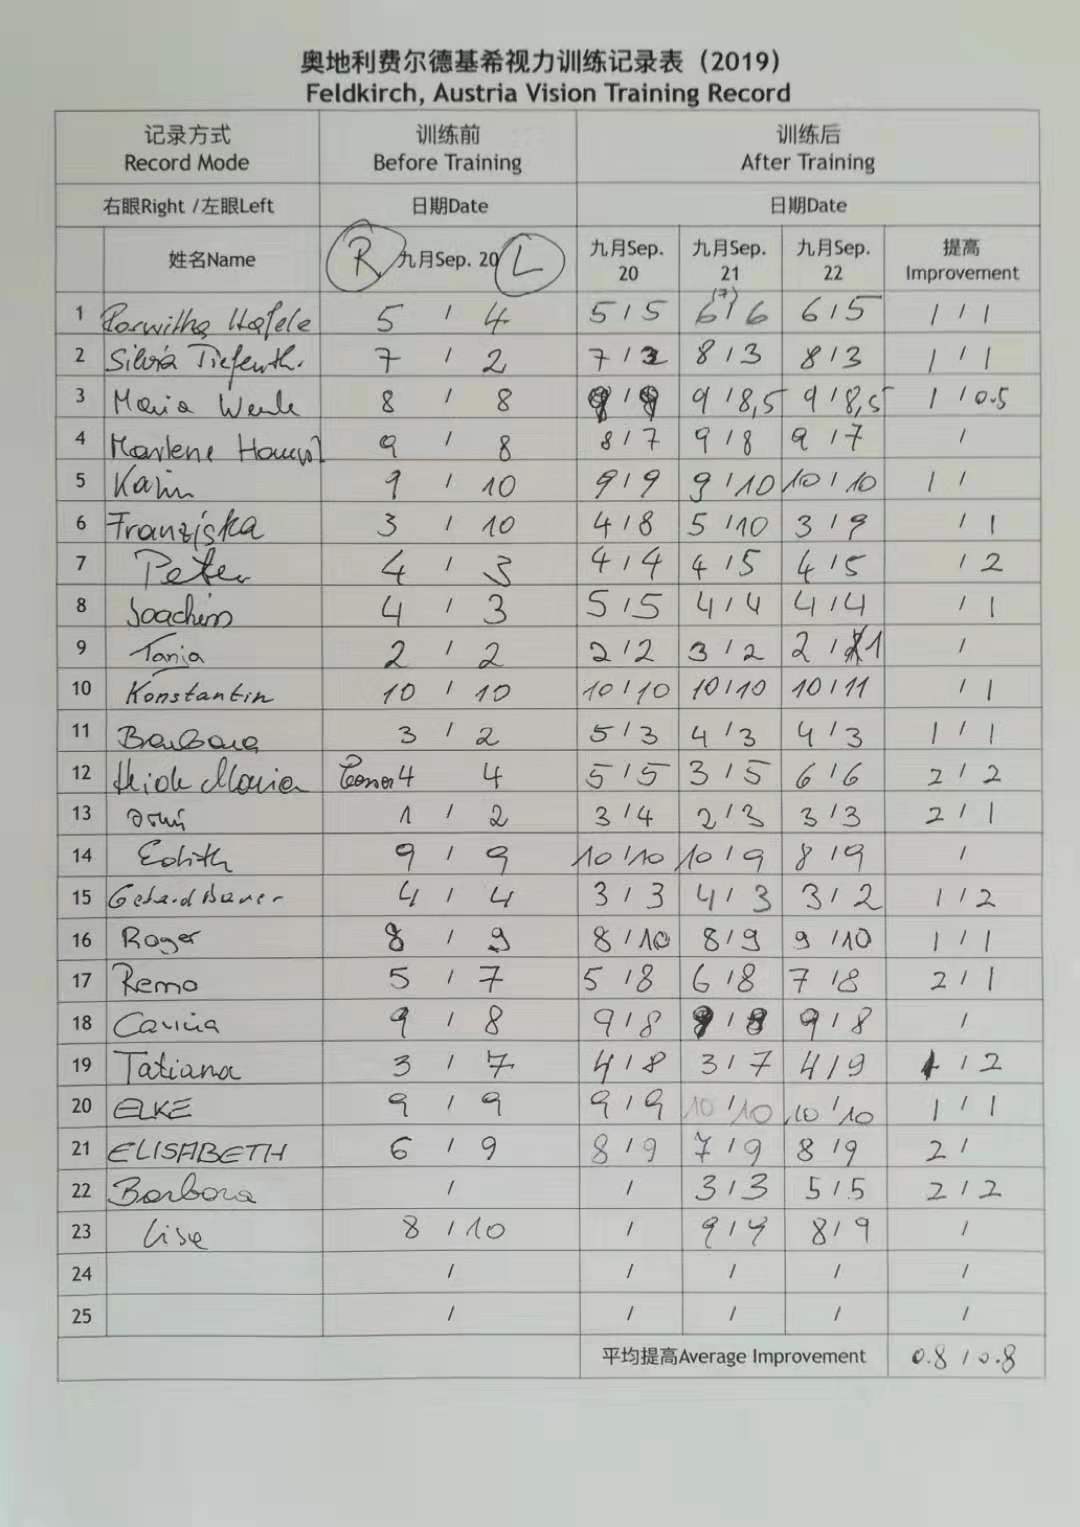 奥地利费尔德基希视力训练记录表（2019）
Feldkirch, Austria Vision Training Record
记录方式 训练前 训练后
Record Mode Before Training After Training
右眼Right /左眼Left 日期Date 日期Date
姓名Name R 九月Sep. 20 L 九月Sep. 20 九月Sep. 21 九月Sep. 22 提高 Improvement
(7)
1 5 / 4 5/5 6/6 6/5 1 / 1
2 Silvia Tiefenth. 7 / 2 7/3 8/3 8/3 1 / 1
3 Maria 8 / 8 9/9 9/8,5 9/8,5 1 /0.5
4 Marlene 9 / 8 8/7 9/8 9/7 /
5 Karin 9 / 10 9/9 9/10 10/10 1 /
6 Franziska 3 / 10 4/8 5/10 3/9 / 1
7 Peter 4 / 3 4/4 4/5 4/5 / 2
8 Joachim 4 / 3 5/5 4/4 4/4 / 1
9 Tanja 2 / 2 2/2 3/2 2/1 /
10 Konstantin 10 / 10 10/10 10/10 10/11 / 1
11 Barbara 3 / 2 5/3 4/3 4/3 1 / 1
12 Heide Maria 4 4 5/5 3/5 6/6 2 / 2
13 1 / 2 3/4 2/3 3/3 2 / 1
14 Edith 9 / 9 10/10 10/9 8/9 /
15 Gerhard Bauer 4 / 4 3/3 4/3 3/2 1 / 2
16 Roger 8 / 9 8/10 8/9 9/10 1 / 1
17 Remo 5 / 7 5/8 6/8 7/8 2 / 1
18 Carina 9 / 8 9/8 9/8 9/8 /
19 Tatiana 3 / 7 4/8 3/7 4/9 1 / 2
20 ELKE 9 / 9 9/9 10/10 10/10 1 / 1
21 ELISABETH 6 / 9 8/9 7/9 8/9 2 /
22 Barbora / / 3/3 5/5 2 / 2
23 Lisa 8 / 10 / 9/9 8/9 /
24 / / / / /
25 / / / / /
平均提高Average Improvement 0.8 / 0.8